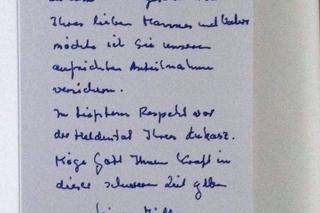 Ihres lieben Mannes und Vaters
möchte ich Sie unserer
aufrichten Anteilnahme
versichern.
In tiefstem Respekt vor
der Heldentat Ihres Łukasz.
Möge Gott Ihnen Kraft in
dieser schweren Zeit geben